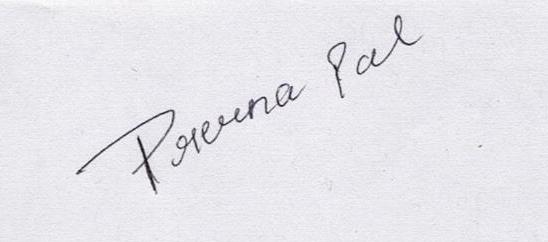 Prerna Pal